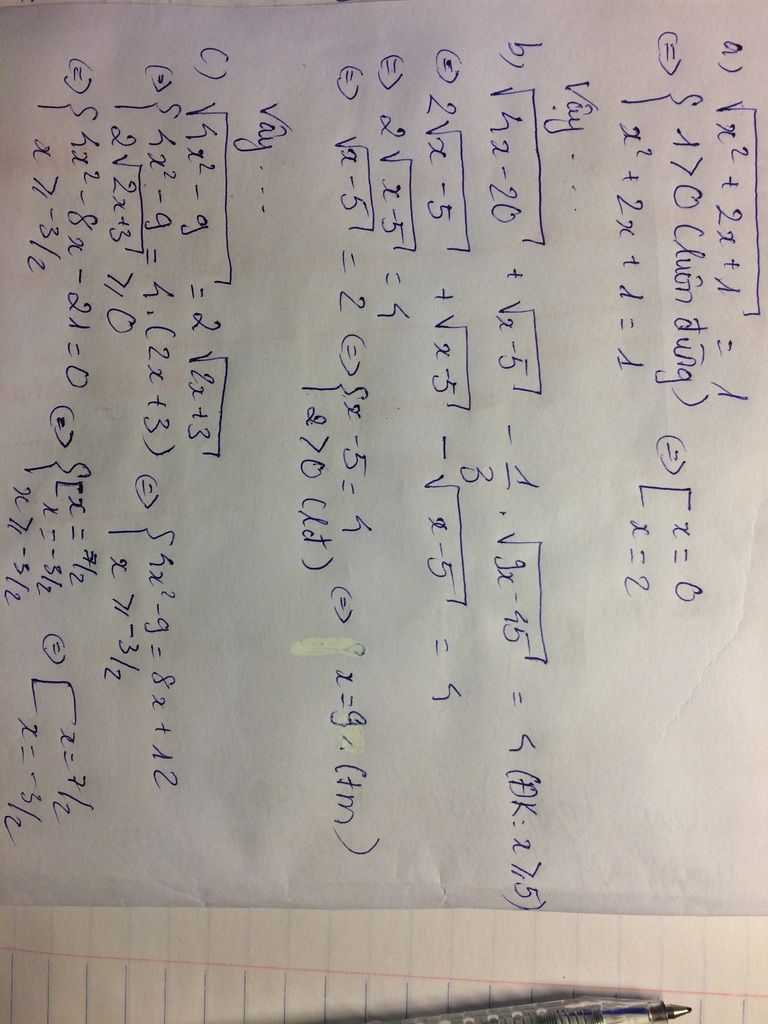 a) √(x² + 2x + 1) = 1
(=) { 1 > 0 (luôn đúng)
x² + 2x + 1 = 1 (=) [ x = 0
x = 2
Vậy ...
b, √(4x - 20) + √(x - 5) - 1/3 . √(9x - 45) = 4 (ĐK: x ⩾ 5)
(=) 2√(x - 5) + √(x - 5) - √(x - 5) = 4
(=) 2√(x - 5) = 4
(=) √(x - 5) = 2 (=) { x - 5 = 4
2 > 0 (lđ) (=) x = 9 (tm)
Vậy ...
c) √(4x² - 9) = 2√(2x + 3)
(=) { 4x² - 9 = 4.(2x + 3)
2√(2x + 3) ⩾ 0 (=) { 4x² - 9 = 8x + 12
x ⩾ -3/2
(=) { 4x² - 8x - 21 = 0
x ⩾ -3/2 (=) { [ x = 7/2
x = -3/2
x ⩾ -3/2 (=) [ x = 7/2
x = -3/2